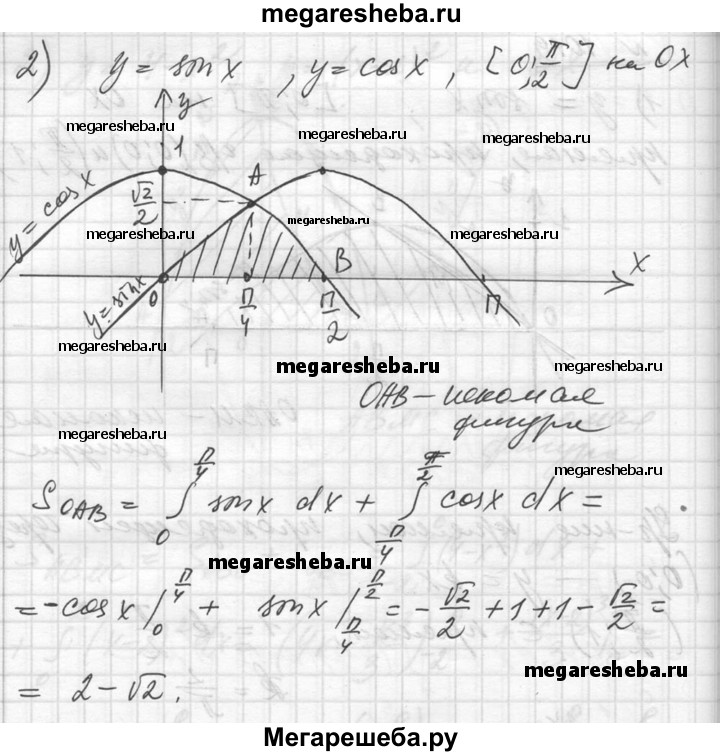 megaresheba.ru
2) y = sin x , y = cos x , [0; π/2] на OX
y
megaresheba.ru
megaresheba.ru
megaresheba.ru
1
A
y = cos x
√2/2
megaresheba.ru
megaresheba.ru
megaresheba.ru
B
x
y = sin x
0
π/4
π/2
π
megaresheba.ru
megaresheba.ru
OAB – искомая
фигура
megaresheba.ru
megaresheba.ru
S_OAB = ∫_0^{π/4} sin x dx + ∫_{π/4}^{π/2} cos x dx =
megaresheba.ru
= -cos x |_0^{π/4} + sin x |_{π/4}^{π/2} = -√2/2 + 1 + 1 - √2/2 =
megaresheba.ru
= 2 - √2.
Мегарешеба.ру